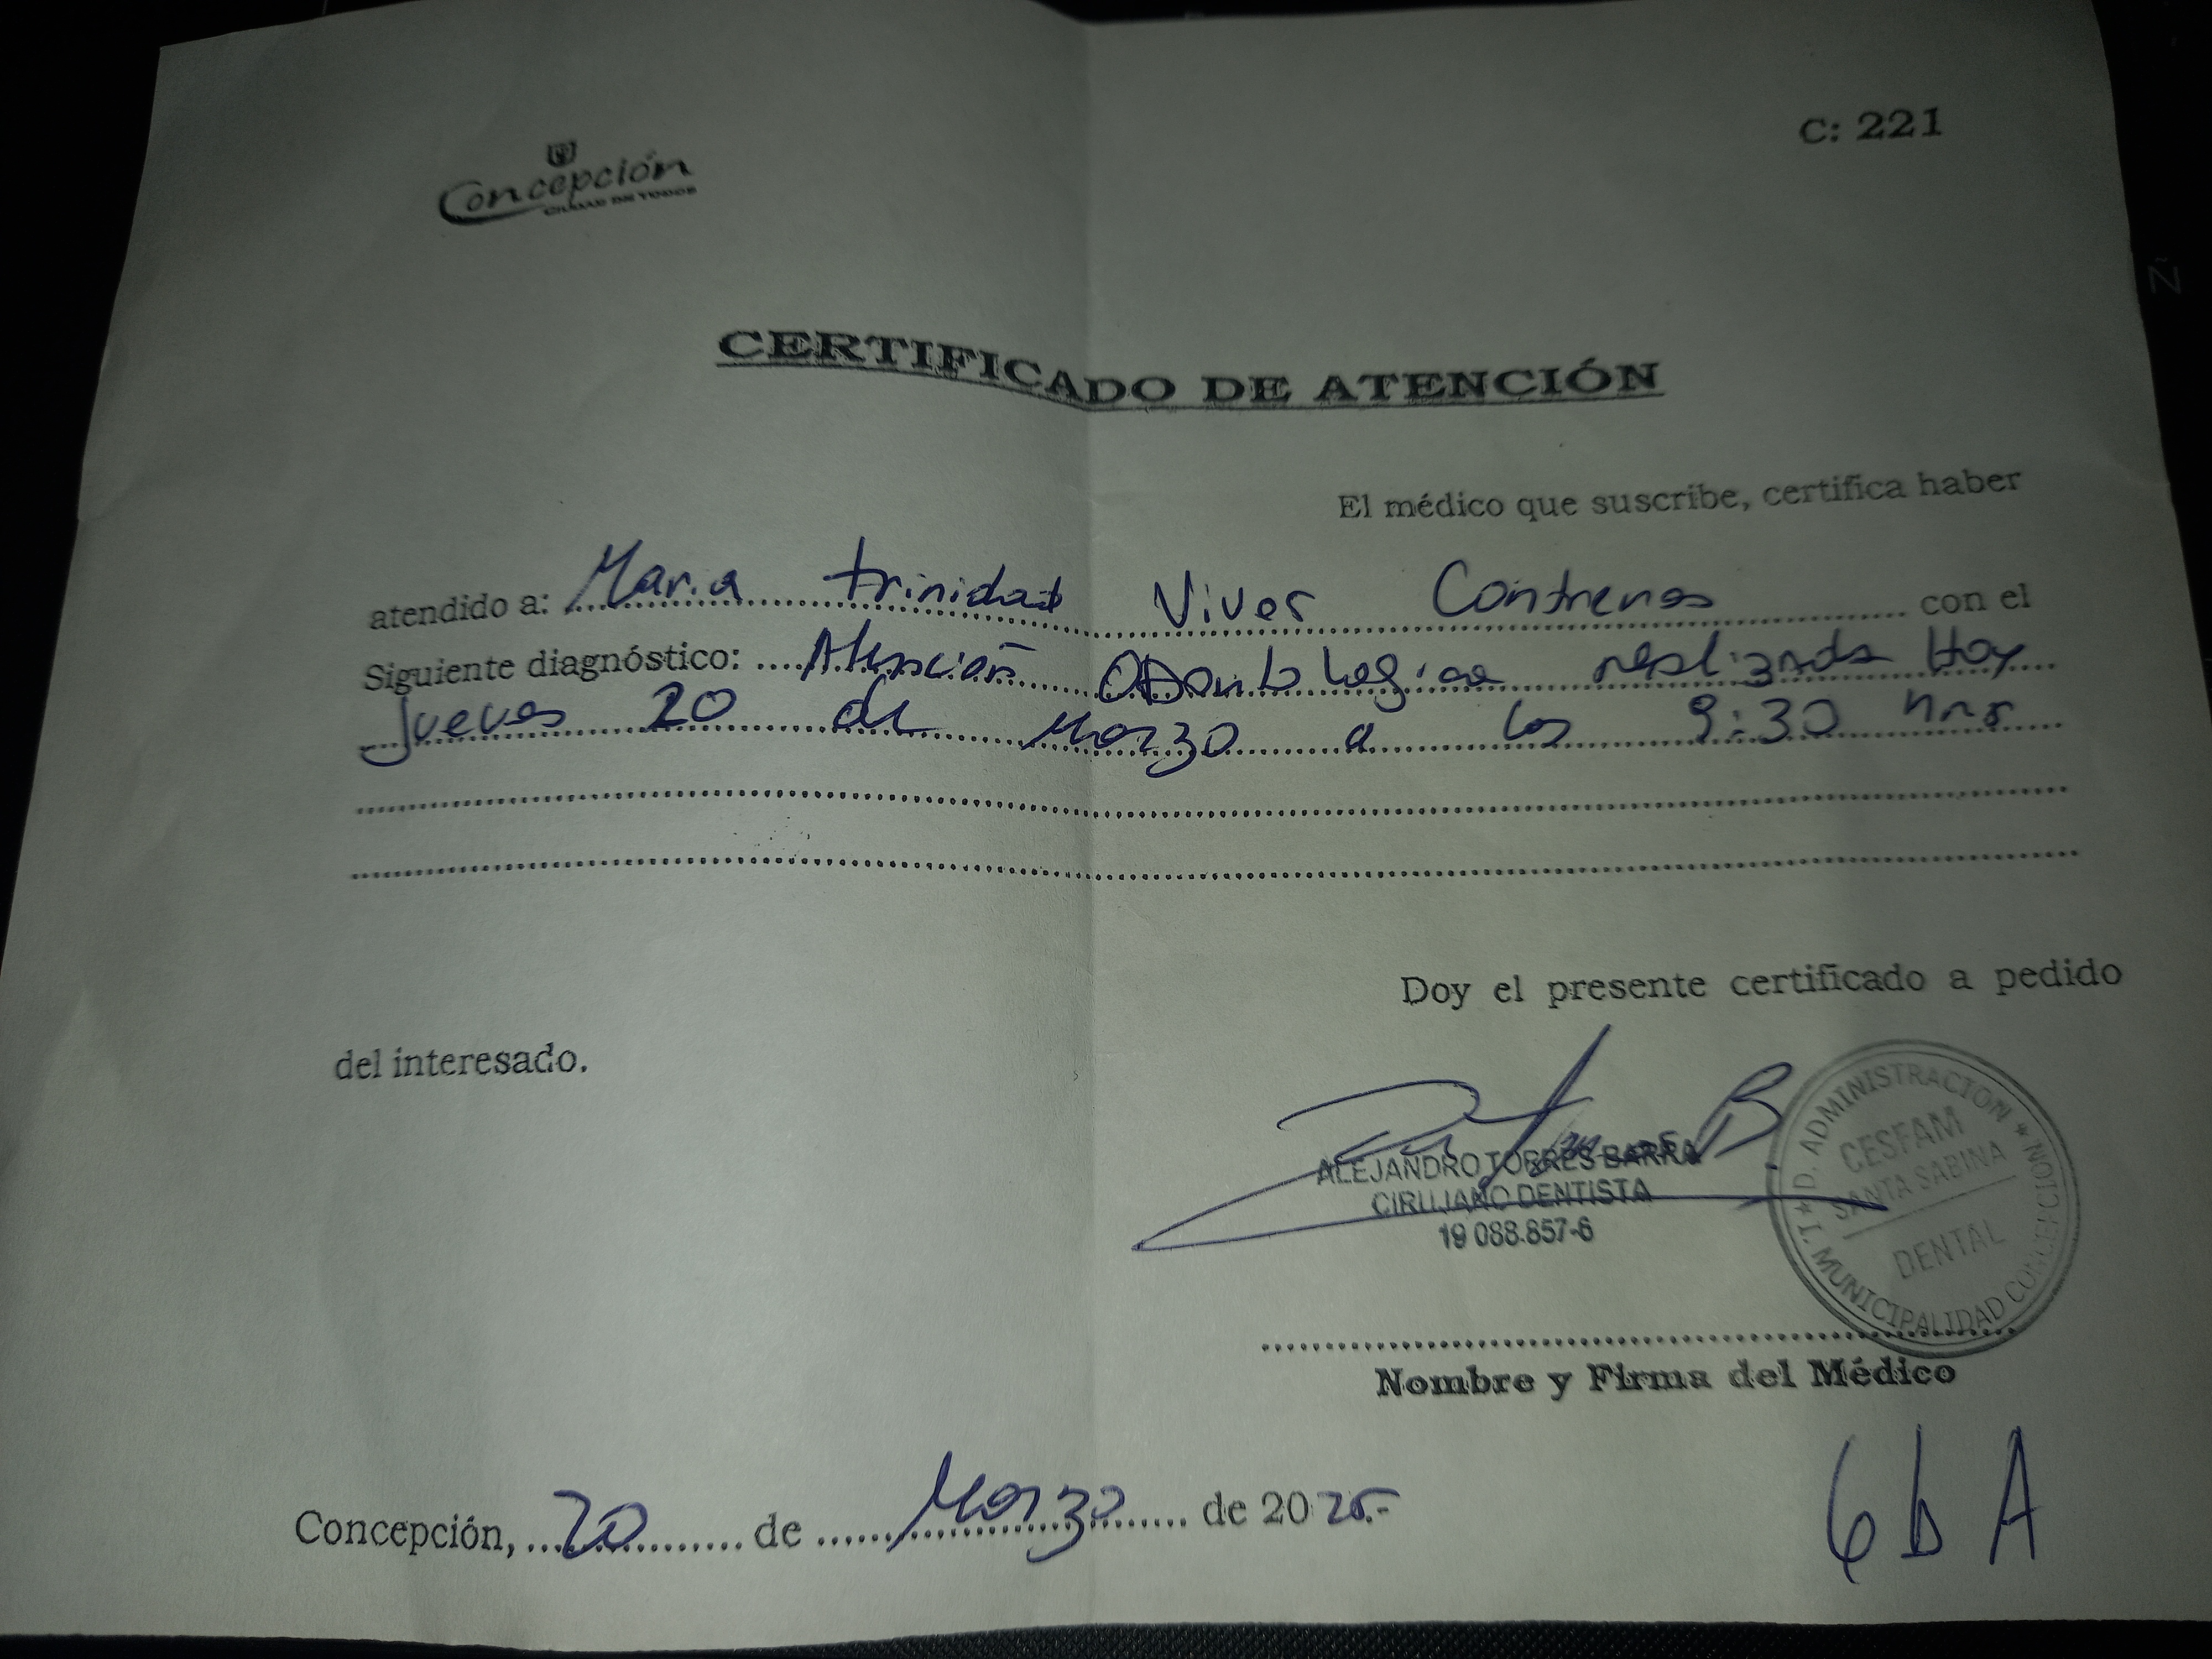 Concepción
CIUDAD DE TODOS
C: 221
CERTIFICADO DE ATENCIÓN
El médico que suscribe, certifica haber
atendido a: Maria trinidad Viver Contreras con el
Siguiente diagnóstico: Atención Odontologica realizada Hoy
Jueves 20 de Marzo a las 9:30 hrs
Doy el presente certificado a pedido
del interesado.
ALEJANDRO TORRES BARRA
CIRUJANO DENTISTA
19 088.857-6
D. ADMINISTRACION
I. MUNICIPALIDAD CONCEPCION
CESFAM
SANTA SABINA
DENTAL
Nombre y Firma del Médico
6 b A
Concepción, 20 de Marzo de 2025.-